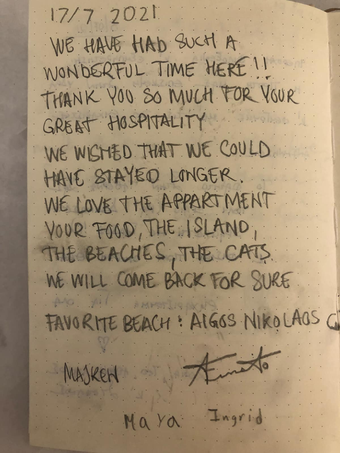 17/7 2021
WE HAVE HAD SUCH A
WONDERFUL TIME HERE!!
THANK YOU SO MUCH FOR YOUR
GREAT HOSPITALITY
WE WISHED THAT WE COULD
HAVE STAYED LONGER.
WE LOVE THE APPARTMENT
YOUR FOOD, THE ISLAND,
THE BEACHES, THE CATS.
WE WILL COME BACK FOR SURE
FAVORITE BEACH: AIGOS NIKOLAOS
Maya Ingrid